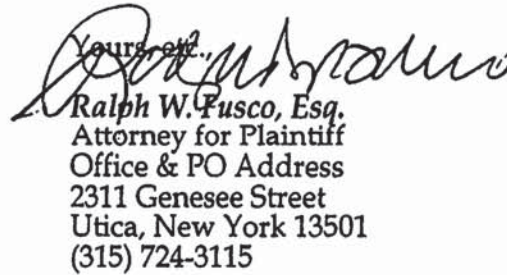 Yours, etc.,
Ralph W. Fusco, Esq.
Attorney for Plaintiff
Office & PO Address
2311 Genesee Street
Utica, New York 13501
(315) 724-3115